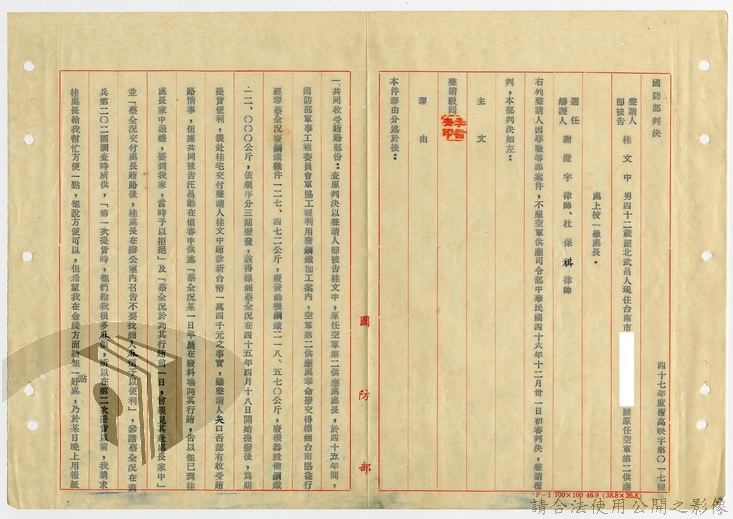 國防部判決
四十七年度覆高映字第〇一七號
聲請人
即被告 桂文中 男四十二歲湖北武昌人現住台南市
號原任空軍第二供應
處上校一級處長。
選任
辯護人 謝澄宇律師、杜保祺律師
右列聲請人因瀆職等罪案件,不服空軍供應司令部中華民國四十六年十二月卅一日初審判決,聲請覆
判,本部判決如左:
主文
聲請駁回。
理由
本件理由分述於後:
一共同收受賄賂部份:查原判決以聲請人即被告桂文中,原任空軍第二供應處處長,於四十五年間,
國防部軍事工程委員會軍協工程利用廢鋼鐵加工案內,空軍第二供應處奉命撥交得標商台南協從行
經理蔡全況廢鋼鐵雜件一二七、四七二公斤,廢發動機鋼鐵二一八、五七〇公斤,廢機器設備鋼鐵
一二、〇〇〇公斤,依順序分三期撥發,該得標商蔡全況在四十五年四月十八日開始提撥後,為期
提貨便利,親赴桂宅交付聲請人桂文中賄款新台幣一萬四千元之事實,雖聲請人矢口否認有收受賄
路情事,但據共同被告汪昌麟在偵審中供述「蔡全況某一日早晨在廢料場向其行賄,告以他已到桂
處長家中送禮,要到我家,當時予以拒絕」及「蔡全況於向其行賄前一日,曾親見其赴處長家中」
並「蔡全況交付處長賄路後,桂處長在辦公室內召告不要找商人麻煩予以便利」,參諸蔡全況在憲
兵第二〇二團調查時所供,「第一次提貨時,他們給我很多麻煩,所以在第二次提貨以前,我請求
桂處長給我幫忙方便一點,他說方便可以,但希望我在金錢方面給他一點好處,乃於某日晚上用報紙
國防部
F-1 700×100 46.9 (38.8×26.8)
請合法使用公開之影像